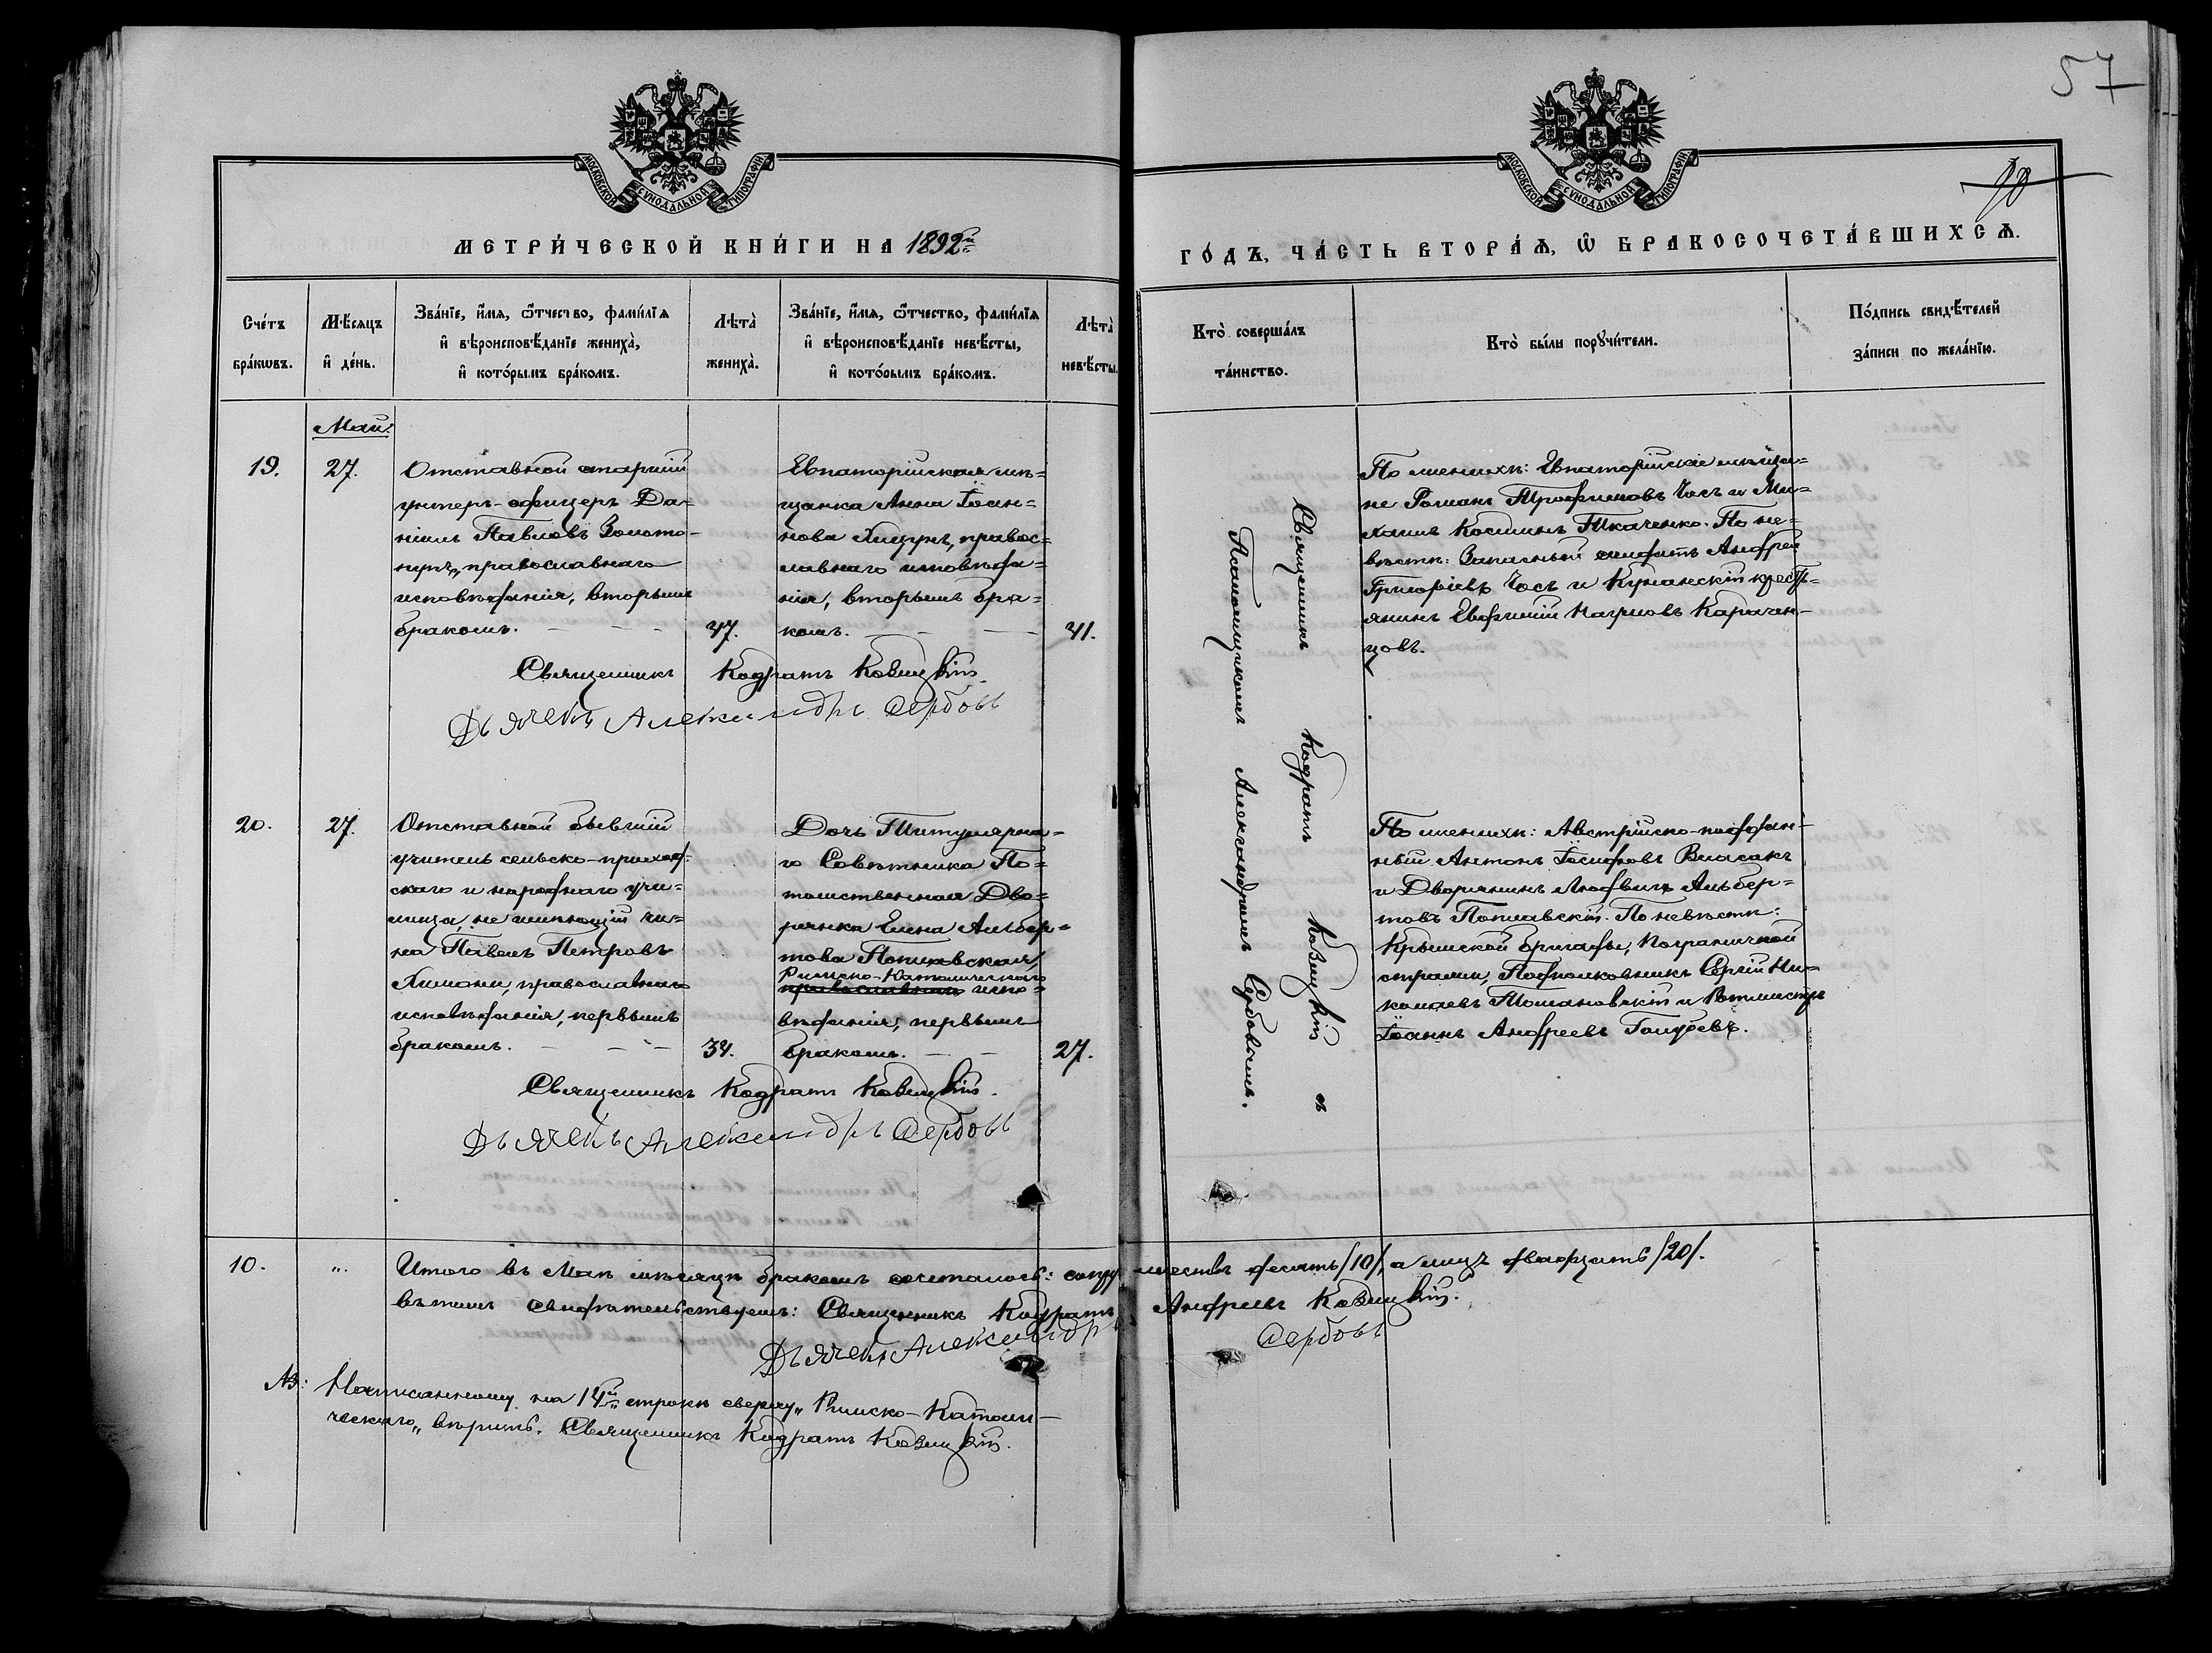 57
МОСКОВСКОЙ СѴНОДАЛЬНОЙ ТИПОГРАФІИ.
МОСКОВСКОЙ СѴНОДАЛЬНОЙ ТИПОГРАФІИ.
МЕТРИ́ЧЕСКОЙ КНИ́ГИ НА 1892й
ГО́ДЪ, ЧА́СТЬ ВТОРА́Ѧ, Ѽ БРАКОСОЧЕТА́ВШИХСѦ.
Сче́тъ
бра́кѡвъ.
Мѣ́сяцъ
и҆ де́нь.
Зва́нїе, и҆́мѧ, ѻ҆́тчество, фами́лїѧ
и҆ вѣроисповѣ́данїе жениха̀,
и҆ кото́рымъ бра́комъ.
Лѣта̀
жениха̀.
Зва́нїе, и҆́мѧ, ѻ҆́тчество, фами́лїѧ
и҆ вѣроисповѣ́данїе невѣ́сты,
и҆ кото́рымъ бра́комъ.
Лѣта̀
невѣ́сты.
Кто̀ соверша́лъ
та́инство.
Кто̀ бы́ли порꙋчи́тели.
По́дпись свидѣ́телей
за́писи по жела́нїю.
Май.
19.
27.
Отставной старшій
унтеръ-офицеръ Да-
ніилъ Павловъ Золото-
, православнаго
исповѣданія, вторымъ
бракомъ. — — —
47.
Евпаторійская мѣ-
щанка Анна Іоан-
нова , правос-
лавнаго исповѣда-
нія, вторымъ бра-
комъ. — — —
41.
Священникъ Кодратъ Ковицкій.
Дьячекъ Александръ Сербовъ
По женихѣ: Евпаторійскіе мѣща-
не Романъ Трофимовъ Чосъ и Ми-
хаилъ Космінъ Ткаченко. По не-
вѣстѣ: Запасный солдатъ Андрей
Григорьевъ Чосъ и крестъ-
янинъ Евфимій Карачен-
цовъ.
Священникъ Кодратъ Ковицкій съ
Псаломщикомъ Александромъ Сербовымъ.
20.
27.
Отставной бывшій
учитель сельско-приход-
скаго и народнаго учи-
лища, не имѣющій чи-
на Павелъ Петровъ
Химони, православнаго
исповѣданія, первымъ
бракомъ. — — —
34.
Дочь Титулярна-
го Совѣтника По-
томственная Дво-
рянка Елена Альбер-
това Поплавская,
Римско-Католическаго
православнаго испо-
вѣданія, первымъ
бракомъ. — —
27.
Священникъ Кодратъ Ковицкій.
Дьячекъ Александръ Сербовъ
По женихѣ: Австрійско-поддан-
ный Антонъ Іосифовъ Влосакъ
и Дворянинъ Людвигъ Альбер-
товъ Поплавскій. По невѣстѣ:
Крымской бригады, Пограничной
стражи, Подполковникъ Сергій Ни-
колаевъ Томановскій и Ротмистръ
Іоаннъ Андреевъ Голубевъ.
10.
"
Итого въ Маѣ мѣсяцѣ бракомъ сочеталось: супружествъ десять /10/, а лицъ двадцать /20/.
Въ томъ свидѣтельствуемъ: Священникъ Кодратъ Андреевъ Ковицкій.
Дьячекъ Александръ Сербовъ
NB: Написанному на 14й строкѣ сверху „Римско-Католи-
ческаго„ вѣрить. Священникъ Кодратъ Ковицкій.